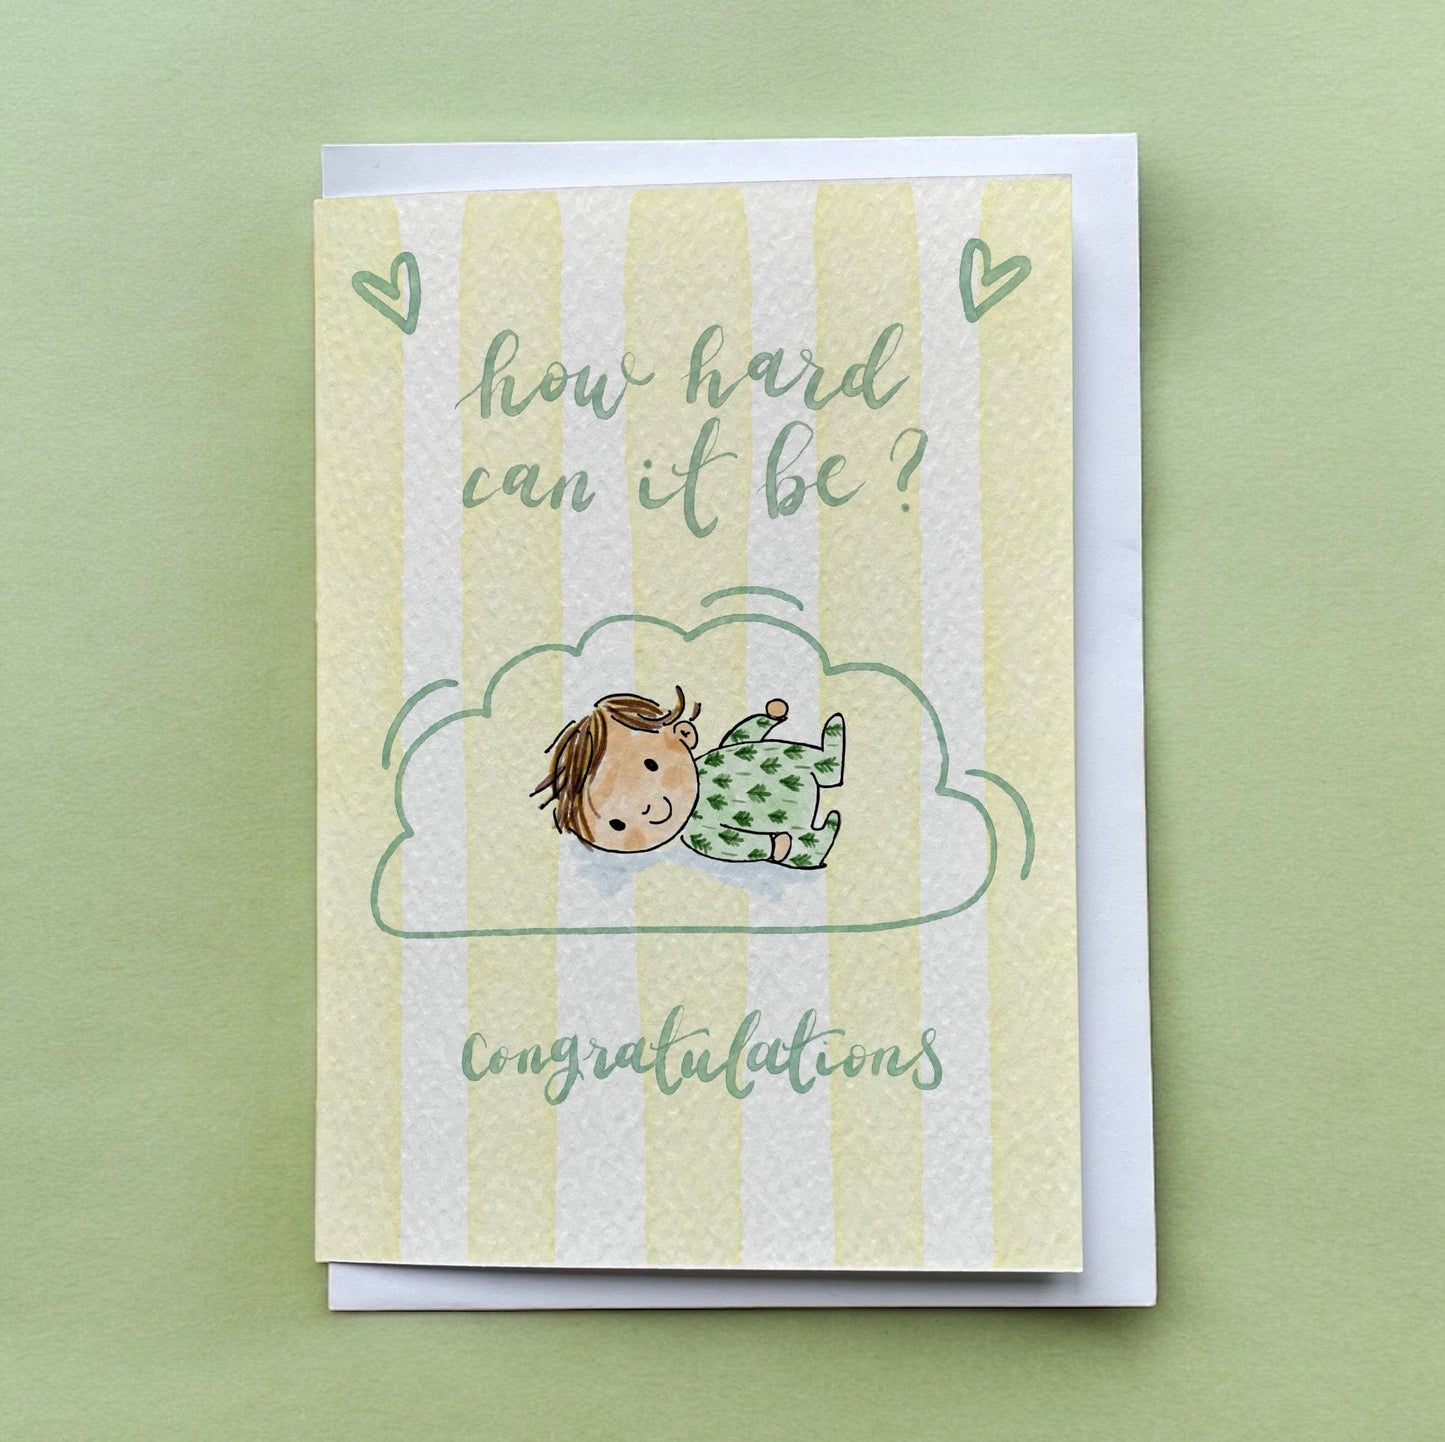 how hard
can it be?
congratulations